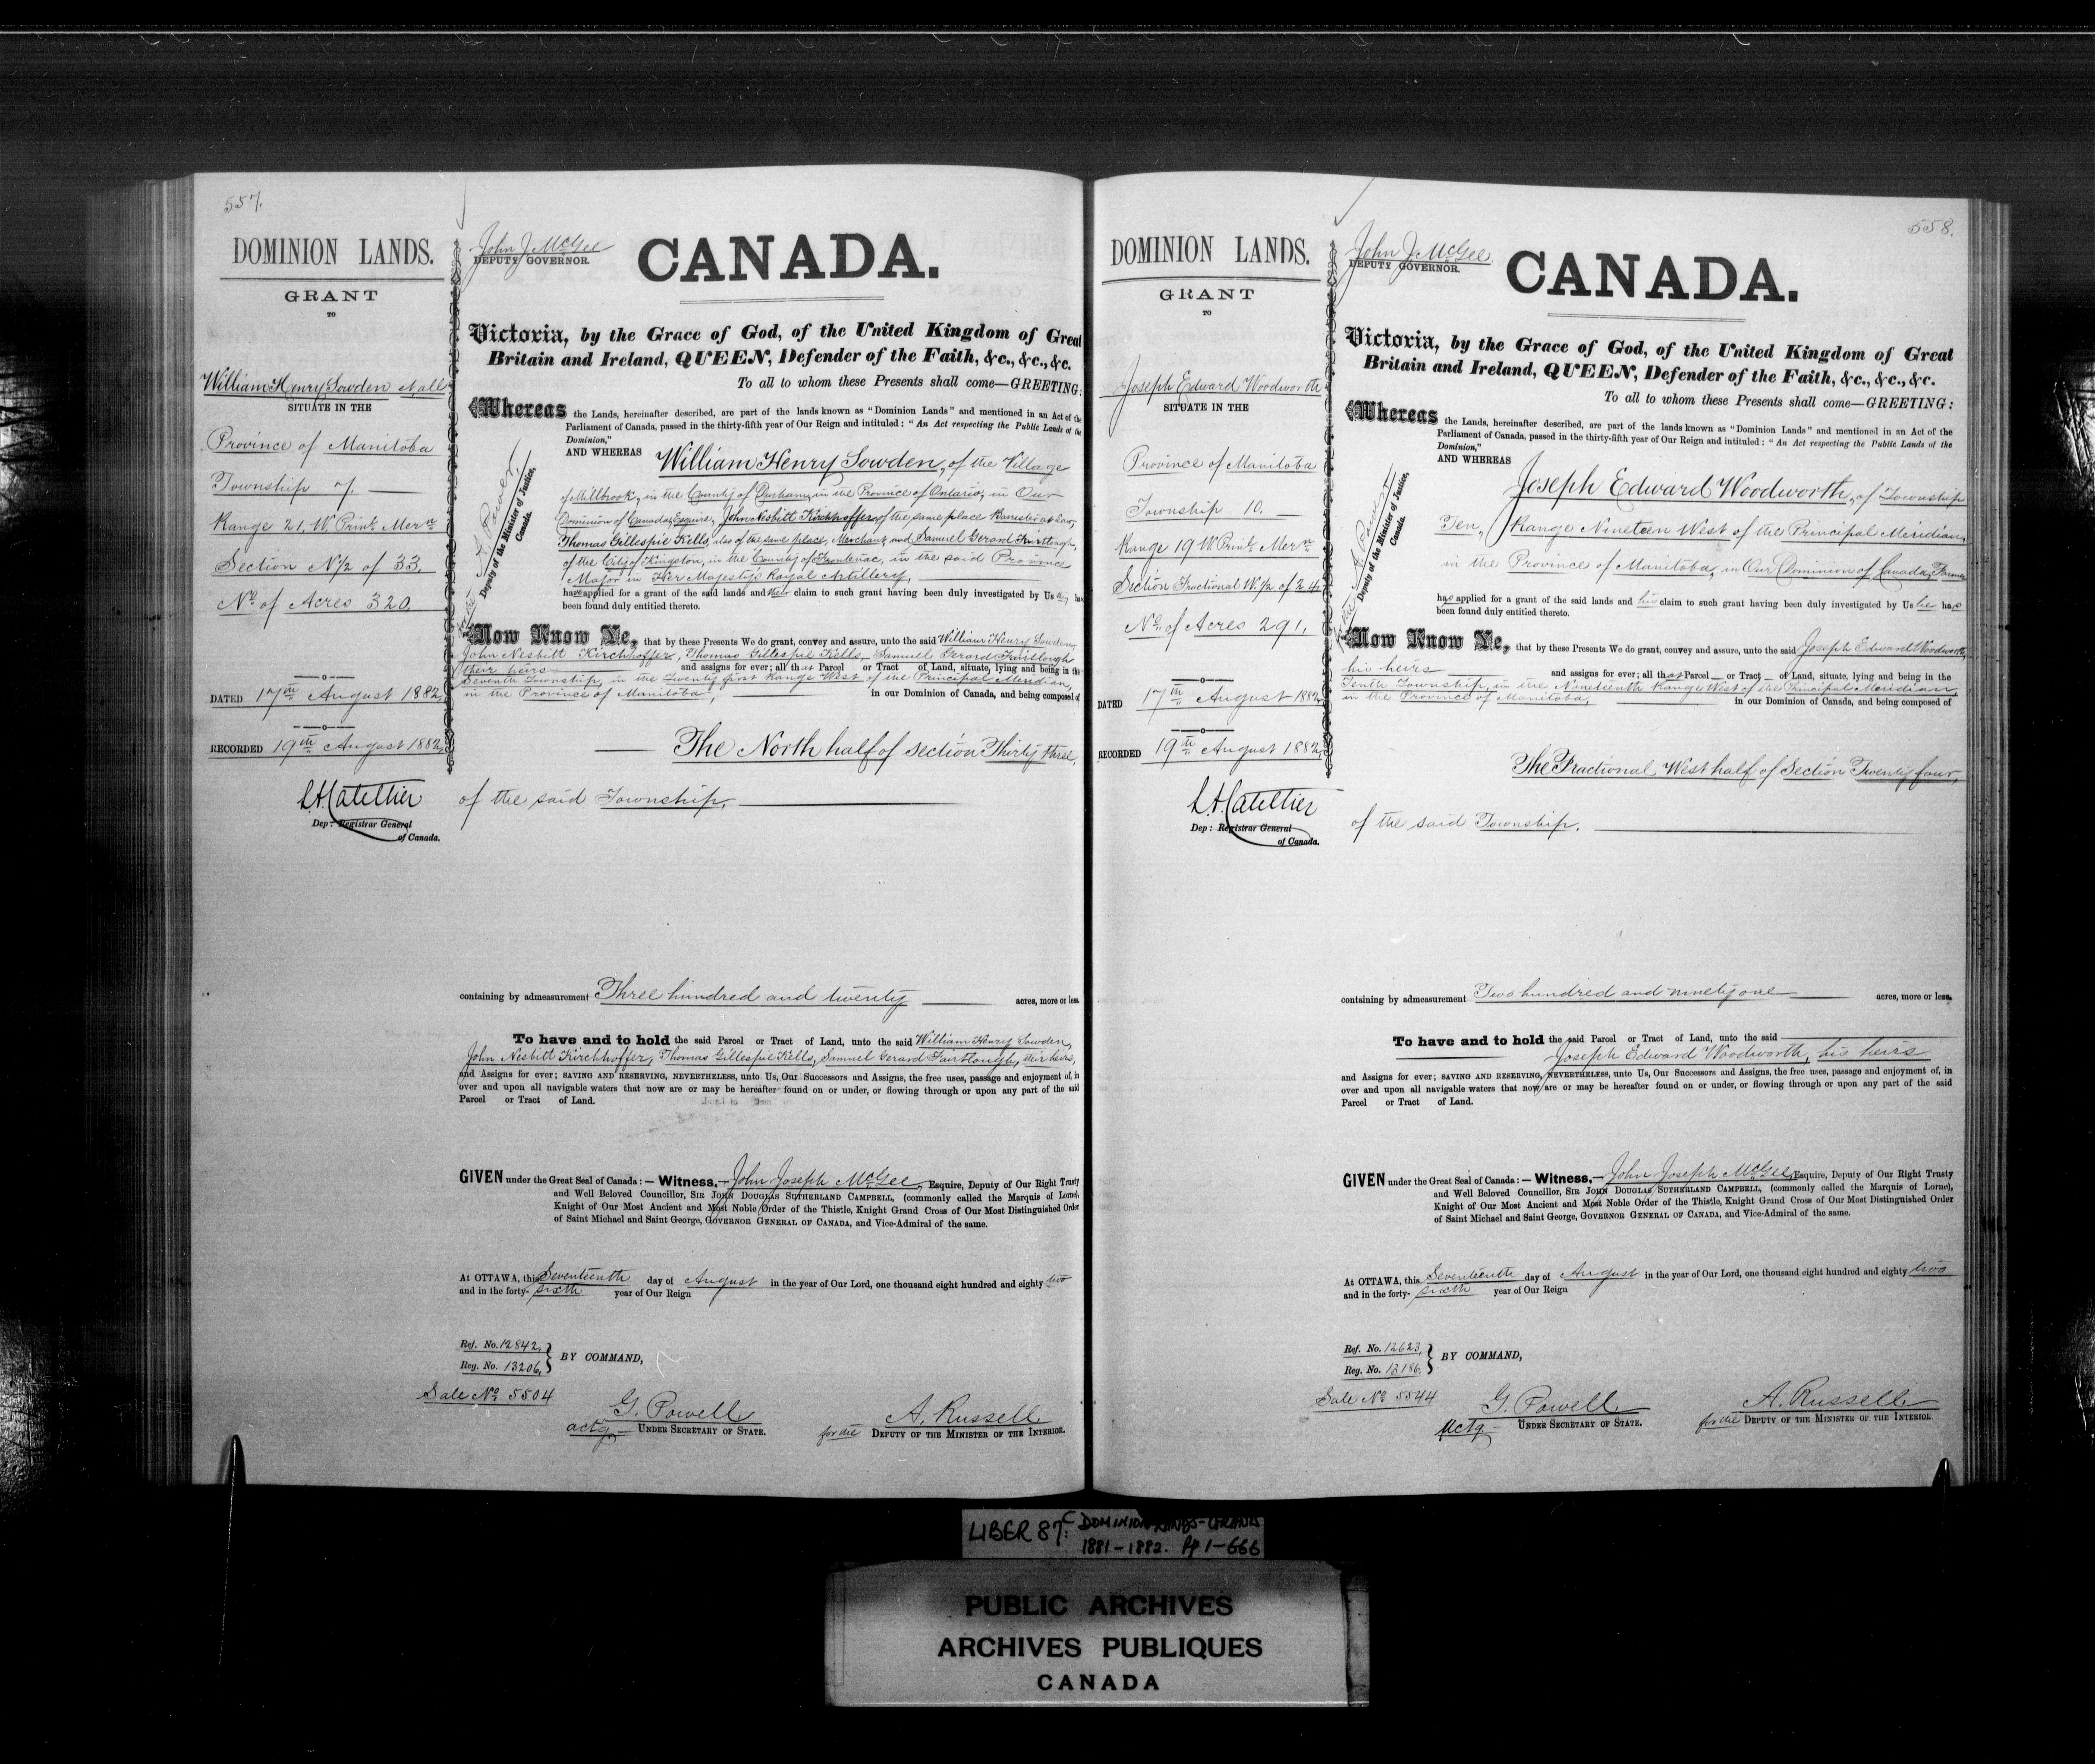 557.
DOMINION LANDS.
GRANT
TO
William Henry Sowden et all
SITUATE IN THE
Province of Manitoba
Township 7.
Range 21, W. Prinl. Mern
Section N½ of 33.
No of Acres 320
DATED 17th August 1882,
RECORDED 19th August 1882,
L.A. Catellier
Dep: Registrar General
of Canada.
John J. McGee
DEPUTY GOVERNOR.
CANADA.
Victoria, by the Grace of God, of the United Kingdom of Great
Britain and Ireland, QUEEN, Defender of the Faith, &c., &c., &c.
To all to whom these Presents shall come—GREETING:
Whereas the Lands, hereinafter described, are part of the lands known as "Dominion Lands" and mentioned in an Act of the
Parliament of Canada, passed in the thirty-fifth year of Our Reign and intituled: "An Act respecting the Public Lands of the
Dominion,"
AND WHEREAS William Henry Sowden, of the Village
of Millbrook, in the County of Durham, in the Province of Ontario, in Our
Dominion of Canada, Esquire, John Nesbitt Kirchhoffer, of the same place Barrister at Law,
Thomas Gillespie Kells, also of the same place, Merchant, and Samuel Gerard Fairtlough,
of the City of Kingston, in the County of Frontenac, in the said Province
Major in Her Majesty's Royal Artillery,
have applied for a grant of the said lands and their claim to such grant having been duly investigated by Us they ha
been found duly entitled thereto.
for the A. Power
Deputy of the Minister of Justice,
Canada.
Now Know Ye, that by these Presents We do grant, convey and assure, unto the said William Henry Sowden,
John Nesbitt Kirchhoffer, Thomas Gillespie Kells, Samuel Gerard Fairtlough
their heirs and assigns for ever; all that Parcel or Tract of Land, situate, lying and being in the
Seventh Township, in the Twenty first Range West of the Principal Meridian,
in the Province of Manitoba, in our Dominion of Canada, and being composed of
The North half of Section Thirty three,
of the said Township,
containing by admeasurement Three hundred and twenty acres, more or less.
To have and to hold the said Parcel or Tract of Land, unto the said William Henry Sowden,
John Nesbitt Kirchhoffer, Thomas Gillespie Kells, Samuel Gerard Fairtlough, their heirs,
and Assigns for ever; SAVING AND RESERVING, NEVERTHELESS, unto Us, Our Successors and Assigns, the free uses, passage and enjoyment of, in
over and upon all navigable waters that now are or may be hereafter found on or under, or flowing through or upon any part of the said
Parcel or Tract of Land.
GIVEN under the Great Seal of Canada:— Witness,— John Joseph McGee, Esquire, Deputy of Our Right Trusty
and Well Beloved Councillor, SIR JOHN DOUGLAS SUTHERLAND CAMPBELL, (commonly called the Marquis of Lorne),
Knight of Our Most Ancient and Most Noble Order of the Thistle, Knight Grand Cross of Our Most Distinguished Order
of Saint Michael and Saint George, GOVERNOR GENERAL OF CANADA, and Vice-Admiral of the same.
At OTTAWA, this Seventeenth day of August in the year of Our Lord, one thousand eight hundred and eighty two
and in the forty- sixth year of Our Reign
Ref. No. 12842,
Reg. No. 13206,
BY COMMAND,
Sale No 5504
G. Powell
actg UNDER SECRETARY OF STATE.
A. Russell
for the DEPUTY OF THE MINISTER OF THE INTERIOR.
558.
DOMINION LANDS.
GRANT
TO
Joseph Edward Woodworth
SITUATE IN THE
Province of Manitoba
Township 10.
Range 19 W. Prinl. Mern
Section Fractional W. ½ of 24
No. of Acres 291,
DATED 17th August 1882,
RECORDED 19th August 1882,
L.A. Catellier
Dep: Registrar General
of Canada.
John J. McGee
DEPUTY GOVERNOR.
CANADA.
Victoria, by the Grace of God, of the United Kingdom of Great
Britain and Ireland, QUEEN, Defender of the Faith, &c., &c., &c.
To all to whom these Presents shall come—GREETING:
Whereas the Lands, hereinafter described, are part of the lands known as "Dominion Lands" and mentioned in an Act of the
Parliament of Canada, passed in the thirty-fifth year of Our Reign and intituled: "An Act respecting the Public Lands of the
Dominion,"
AND WHEREAS
Joseph Edward Woodworth, of Township
Ten, Range Nineteen West of the Principal Meridian,
in the Province of Manitoba, in Our Dominion of Canada, Farmer
has applied for a grant of the said lands and his claim to such grant having been duly investigated by Us he has
been found duly entitled thereto.
for the A. Power
Deputy of the Minister of Justice,
Canada.
Now Know Ye, that by these Presents We do grant, convey and assure, unto the said Joseph Edward Woodworth,
his heirs and assigns for ever; all that Parcel or Tract of Land, situate, lying and being in the
Tenth Township, in the Nineteenth Range West of the Principal Meridian,
in the Province of Manitoba, in our Dominion of Canada, and being composed of
The Fractional West half of Section Twenty four,
of the said Township.
containing by admeasurement Two hundred and ninety one acres, more or less.
To have and to hold the said Parcel or Tract of Land, unto the said
Joseph Edward Woodworth, his heirs
and Assigns for ever; SAVING AND RESERVING, NEVERTHELESS, unto Us, Our Successors and Assigns, the free uses, passage and enjoyment of, in
over and upon all navigable waters that now are or may be hereafter found on or under, or flowing through or upon any part of the said
Parcel or Tract of Land.
GIVEN under the Great Seal of Canada:— Witness,— John Joseph McGee, Esquire, Deputy of Our Right Trusty
and Well Beloved Councillor, SIR JOHN DOUGLAS SUTHERLAND CAMPBELL, (commonly called the Marquis of Lorne),
Knight of Our Most Ancient and Most Noble Order of the Thistle, Knight Grand Cross of Our Most Distinguished Order
of Saint Michael and Saint George, GOVERNOR GENERAL OF CANADA, and Vice-Admiral of the same.
At OTTAWA, this Seventeenth day of August in the year of Our Lord, one thousand eight hundred and eighty two
and in the forty- sixth year of Our Reign
Ref. No. 12623,
Reg. No. 13186,
BY COMMAND,
Sale No 5544
G. Powell
Actg UNDER SECRETARY OF STATE.
A. Russell
for the DEPUTY OF THE MINISTER OF THE INTERIOR.
LIBER 87C: DOMINION LANDS-GRANTS
1881-1882. Pp 1-666
PUBLIC ARCHIVES
ARCHIVES PUBLIQUES
CANADA